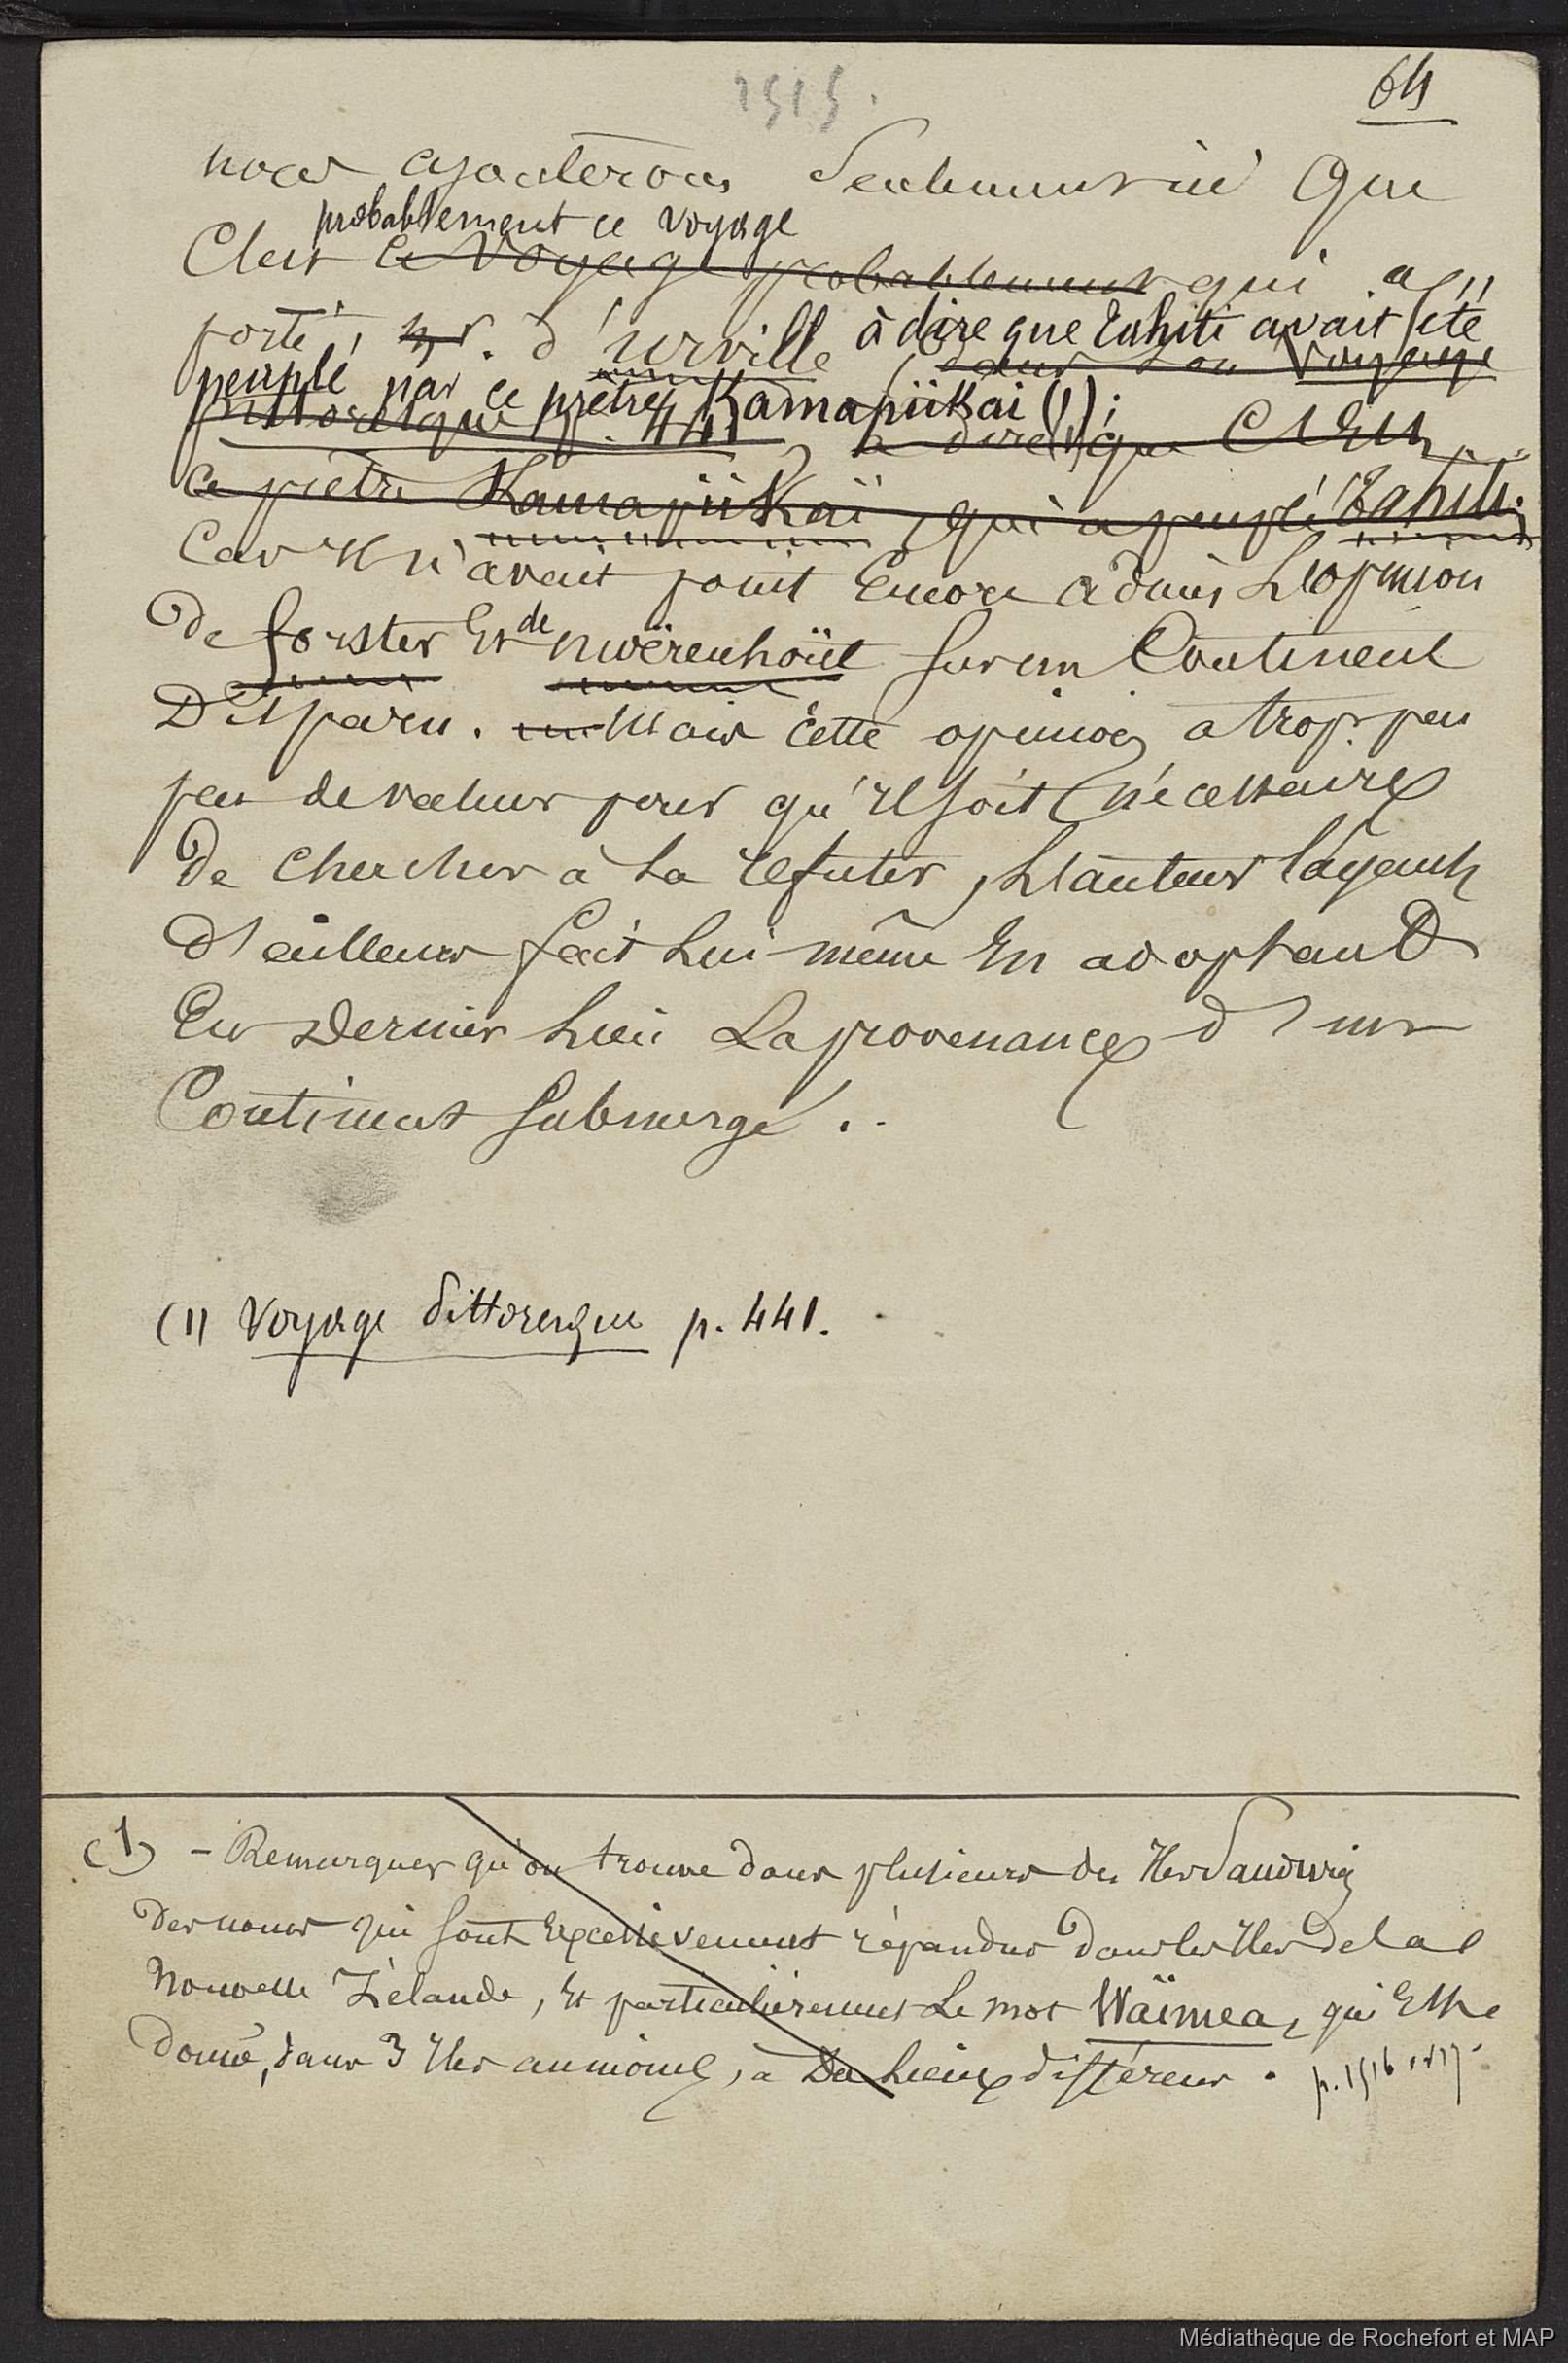 1515.
64
nous ajouterons Seulement ici Que
probablement ce voyage
C'est ce voyage probablement qui a
porté, Mr. d'urville à dire que Tahiti avait été
dans son voyage
peuplé par ce prêtre Kamapiikai (1);
pittoresque p. 441, à dire (1) que C'est
ce prêtre Kamapiikaï, qui a peuplé Tahiti.
Car il n'avait point Encore admis L'opinion
De forster Et de mwërenhoüt Sur un Continent
Disparu. Mais cette opinion a trop peu
peu de valeur pour qu'il soit nécessaire
De chercher à La refuter, L'auteur l'ayant
d'ailleurs fait Lui-même En adoptant
En Dernier Lieu La provenance d'un
Continent Submergé..
(1) Voyage Pittoresque p. 441.
(1) - Remarquer qu'on trouve dans plusieurs des Iles Sandwig
Des noms qui sont Excessivement répandus dans les Iles de la
Nouvelle Zélande, Et particulièrement Le mot Waïmea, qui Est
donné, dans 3 Iles au moins, à Des Lieux différens. p. 1516 1517.
Médiathèque de Rochefort et MAP